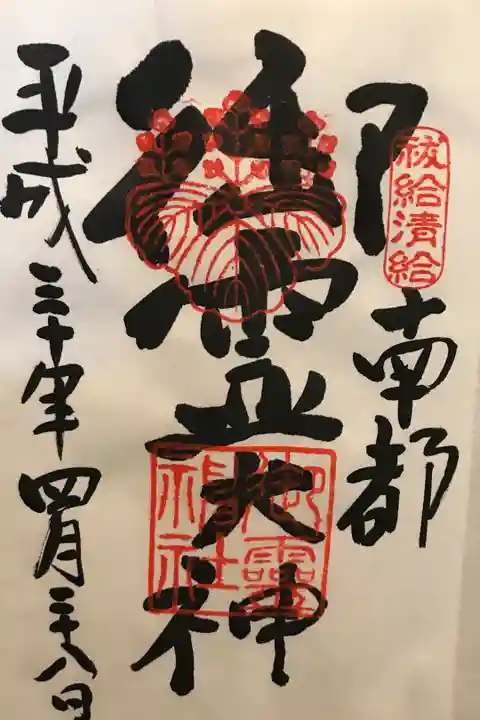 祓給清給
南都
御霊大神
御霊神社
平成三十年四月二十八日